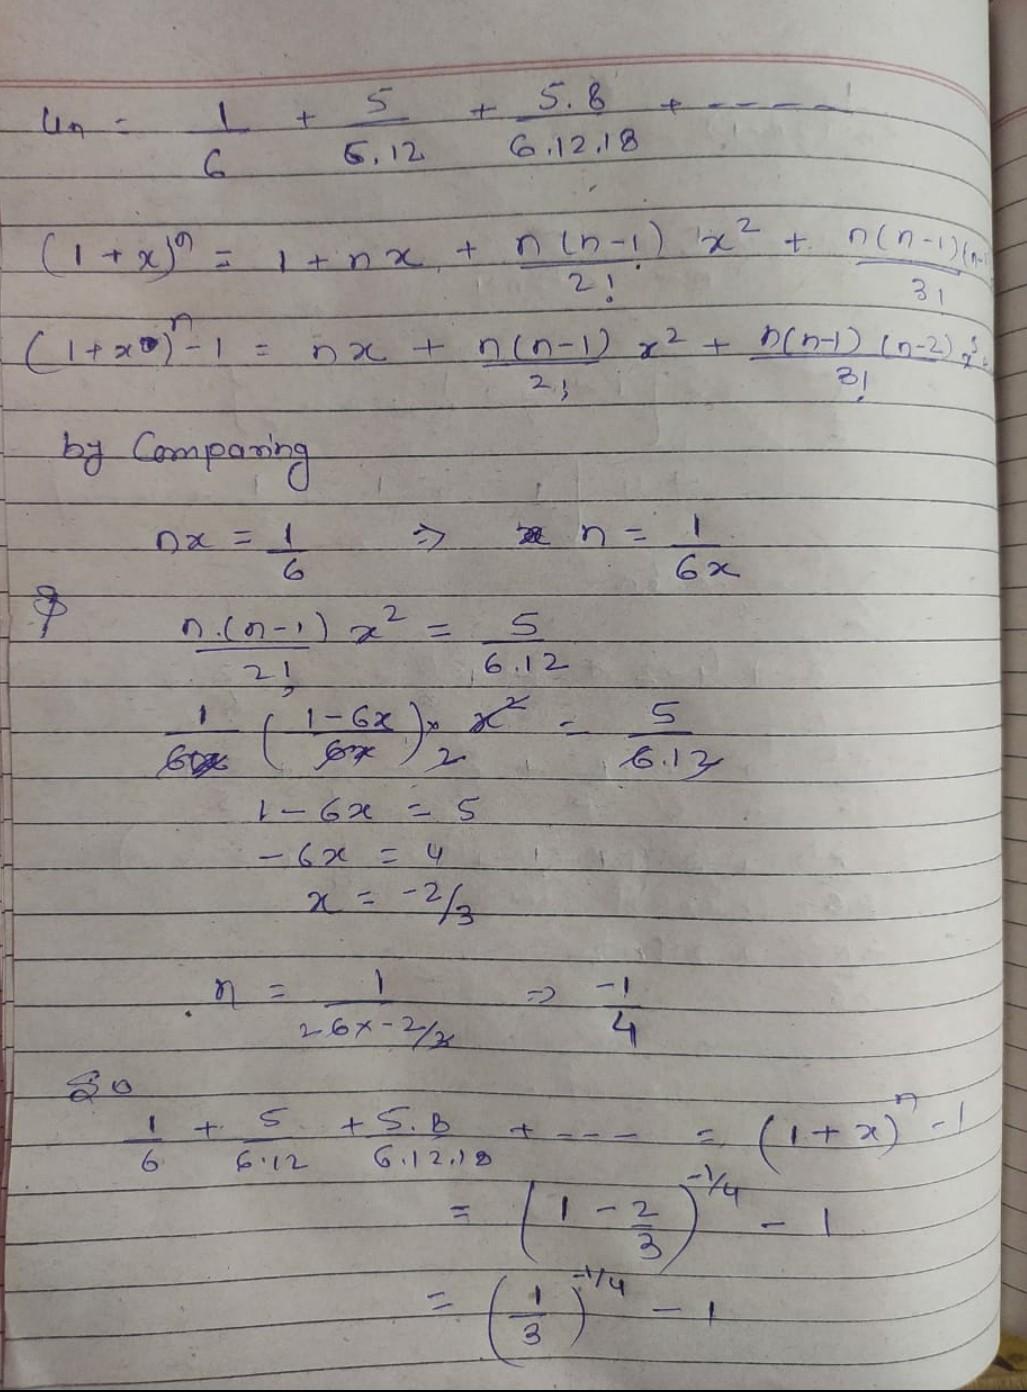 Un = 1/6 + 5/6.12 + 5.8/6.12.18 + - - - -
(1+x)^n = 1 + nx + n(n-1)/2! x^2 + n(n-1)(n-/3!
(1+x)^n - 1 = nx + n(n-1)/2! x^2 + n(n-1)(n-2)/3! x^3
by Comparing
nx = 1/6 ⇒ n = 1/6x
n.(n-1)/2! x^2 = 5/6.12
1/6x (1-6x/6x) × x^2/2 = 5/6.12
1 - 6x = 5
-6x = 4
x = -2/3
n = 1/6×-2/3 ⇒ -1/4
So
1/6 + 5/6.12 + 5.8/6.12.18 + - - - = (1+x)^n - 1
= (1 - 2/3)^-1/4 - 1
= (1/3)^-1/4 - 1